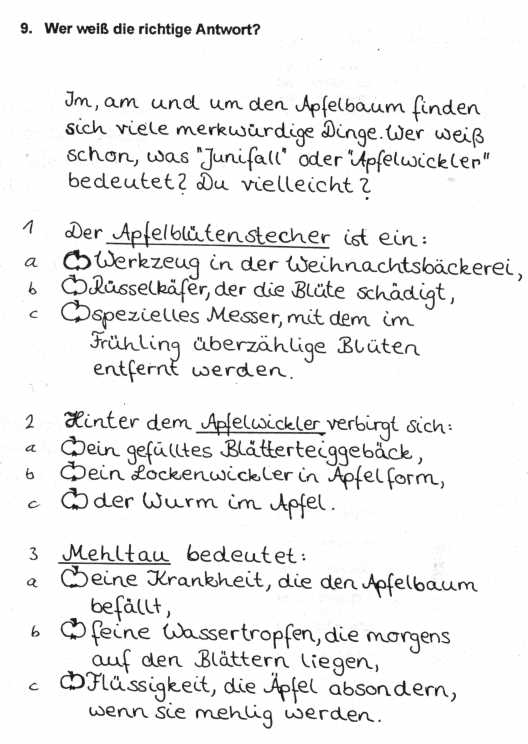 9. Wer weiß die richtige Antwort?
Im, am und um den Apfelbaum finden
sich viele merkwürdige Dinge. Wer weiß
schon, was "Junifall" oder "Apfelwickler"
bedeutet? Du vielleicht?
1 Der Apfelblütenstecher ist ein:
a Werkzeug in der Weihnachtsbäckerei,
b Rüsselkäfer, der die Blüte schädigt,
c spezielles Messer, mit dem im
Frühling überzählige Blüten
entfernt werden.
2 Hinter dem Apfelwickler verbirgt sich:
a ein gefülltes Blätterteiggebäck,
b ein Lockenwickler in Apfelform,
c der Wurm im Apfel.
3 Mehltau bedeutet:
a eine Krankheit, die den Apfelbaum
befällt,
b feine Wassertropfen, die morgens
auf den Blättern liegen,
c Flüssigkeit, die Äpfel absondern,
wenn sie mehlig werden.